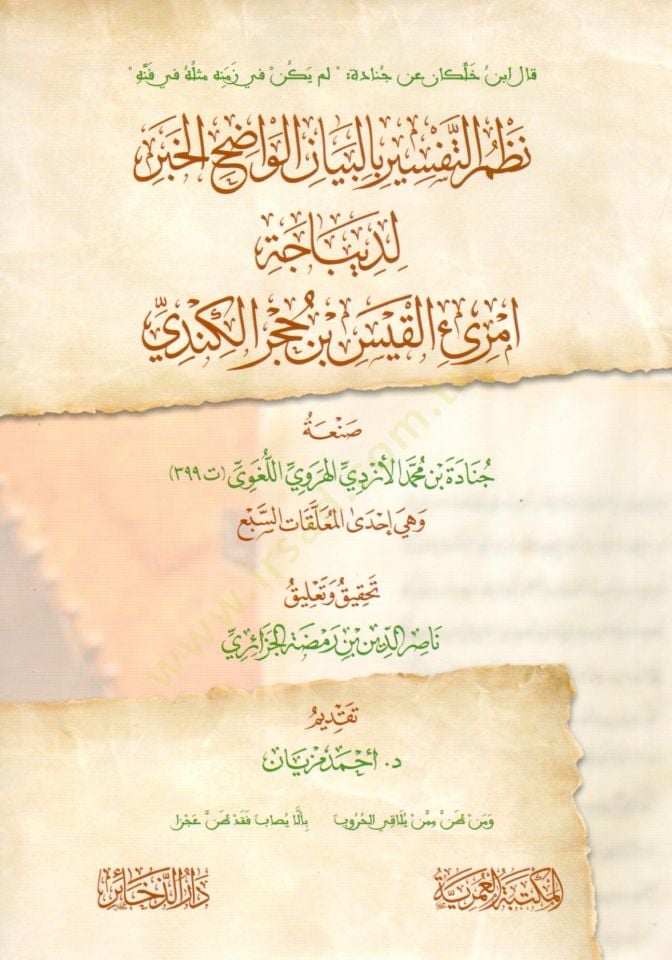 قال ابنُ خَلّكان عن جُنادة: "لم يَكُنْ في زَمَنِه مثلُهُ في فَنِّهِ"
نَظْمُ التَّفْسِيرِ بِالبَيَانِ الوَاضِحِ الخَبَرِ
لِدِيبَاجَةِ
امْرِئِ القَيْسِ بْنِ حُجْرٍ الكِنْدِيِّ
صَنْعَةُ
جُنَادَةَ بْنِ مُحَمَّدٍ الأَزْدِيِّ الهَرَوِيِّ اللُّغَوِيِّ (ت ٣٩٩)
وَهِيَ إِحْدَى المُعَلَّقَاتِ السَّبْعِ
تَحْقِيقُ وَتَعْلِيقُ
نَاصِرِ الدِّينِ بْنِ رَمْضَةَ الجَزَائِرِيِّ
تَقْدِيمُ
د. أَحْمَد مَزيَان
وَمَن ظَنَّ مِمَّن يُلَاقِي الحُرُوبَ بِأَلَّا يُصَابَ فَقَدْ ظَنَّ عَجْزا
المَكْتَبَةُ العُمَرِيَّةُ
دَارُ الذَّخَائِرِ
www.irsad.com.tr